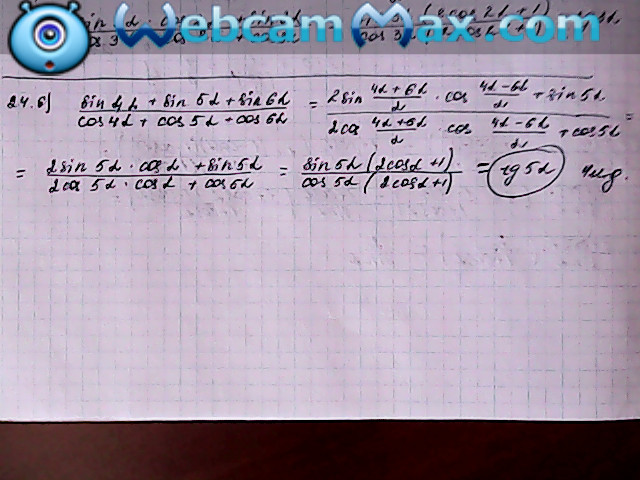 WebcamMax.com
24.6) (sin 4α + sin 5α + sin 6α)/(cos 4α + cos 5α + cos 6α) = (2sin (4α+6α)/2 · cos (4α-6α)/2 + sin 5α)/(2cos (4α+6α)/2 · cos (4α-6α)/2 + cos 5α) =
= (2sin 5α · cos α + sin 5α)/(2cos 5α · cos α + cos 5α) = (sin 5α (2cos α + 1))/(cos 5α (2cos α + 1)) = tg 5α